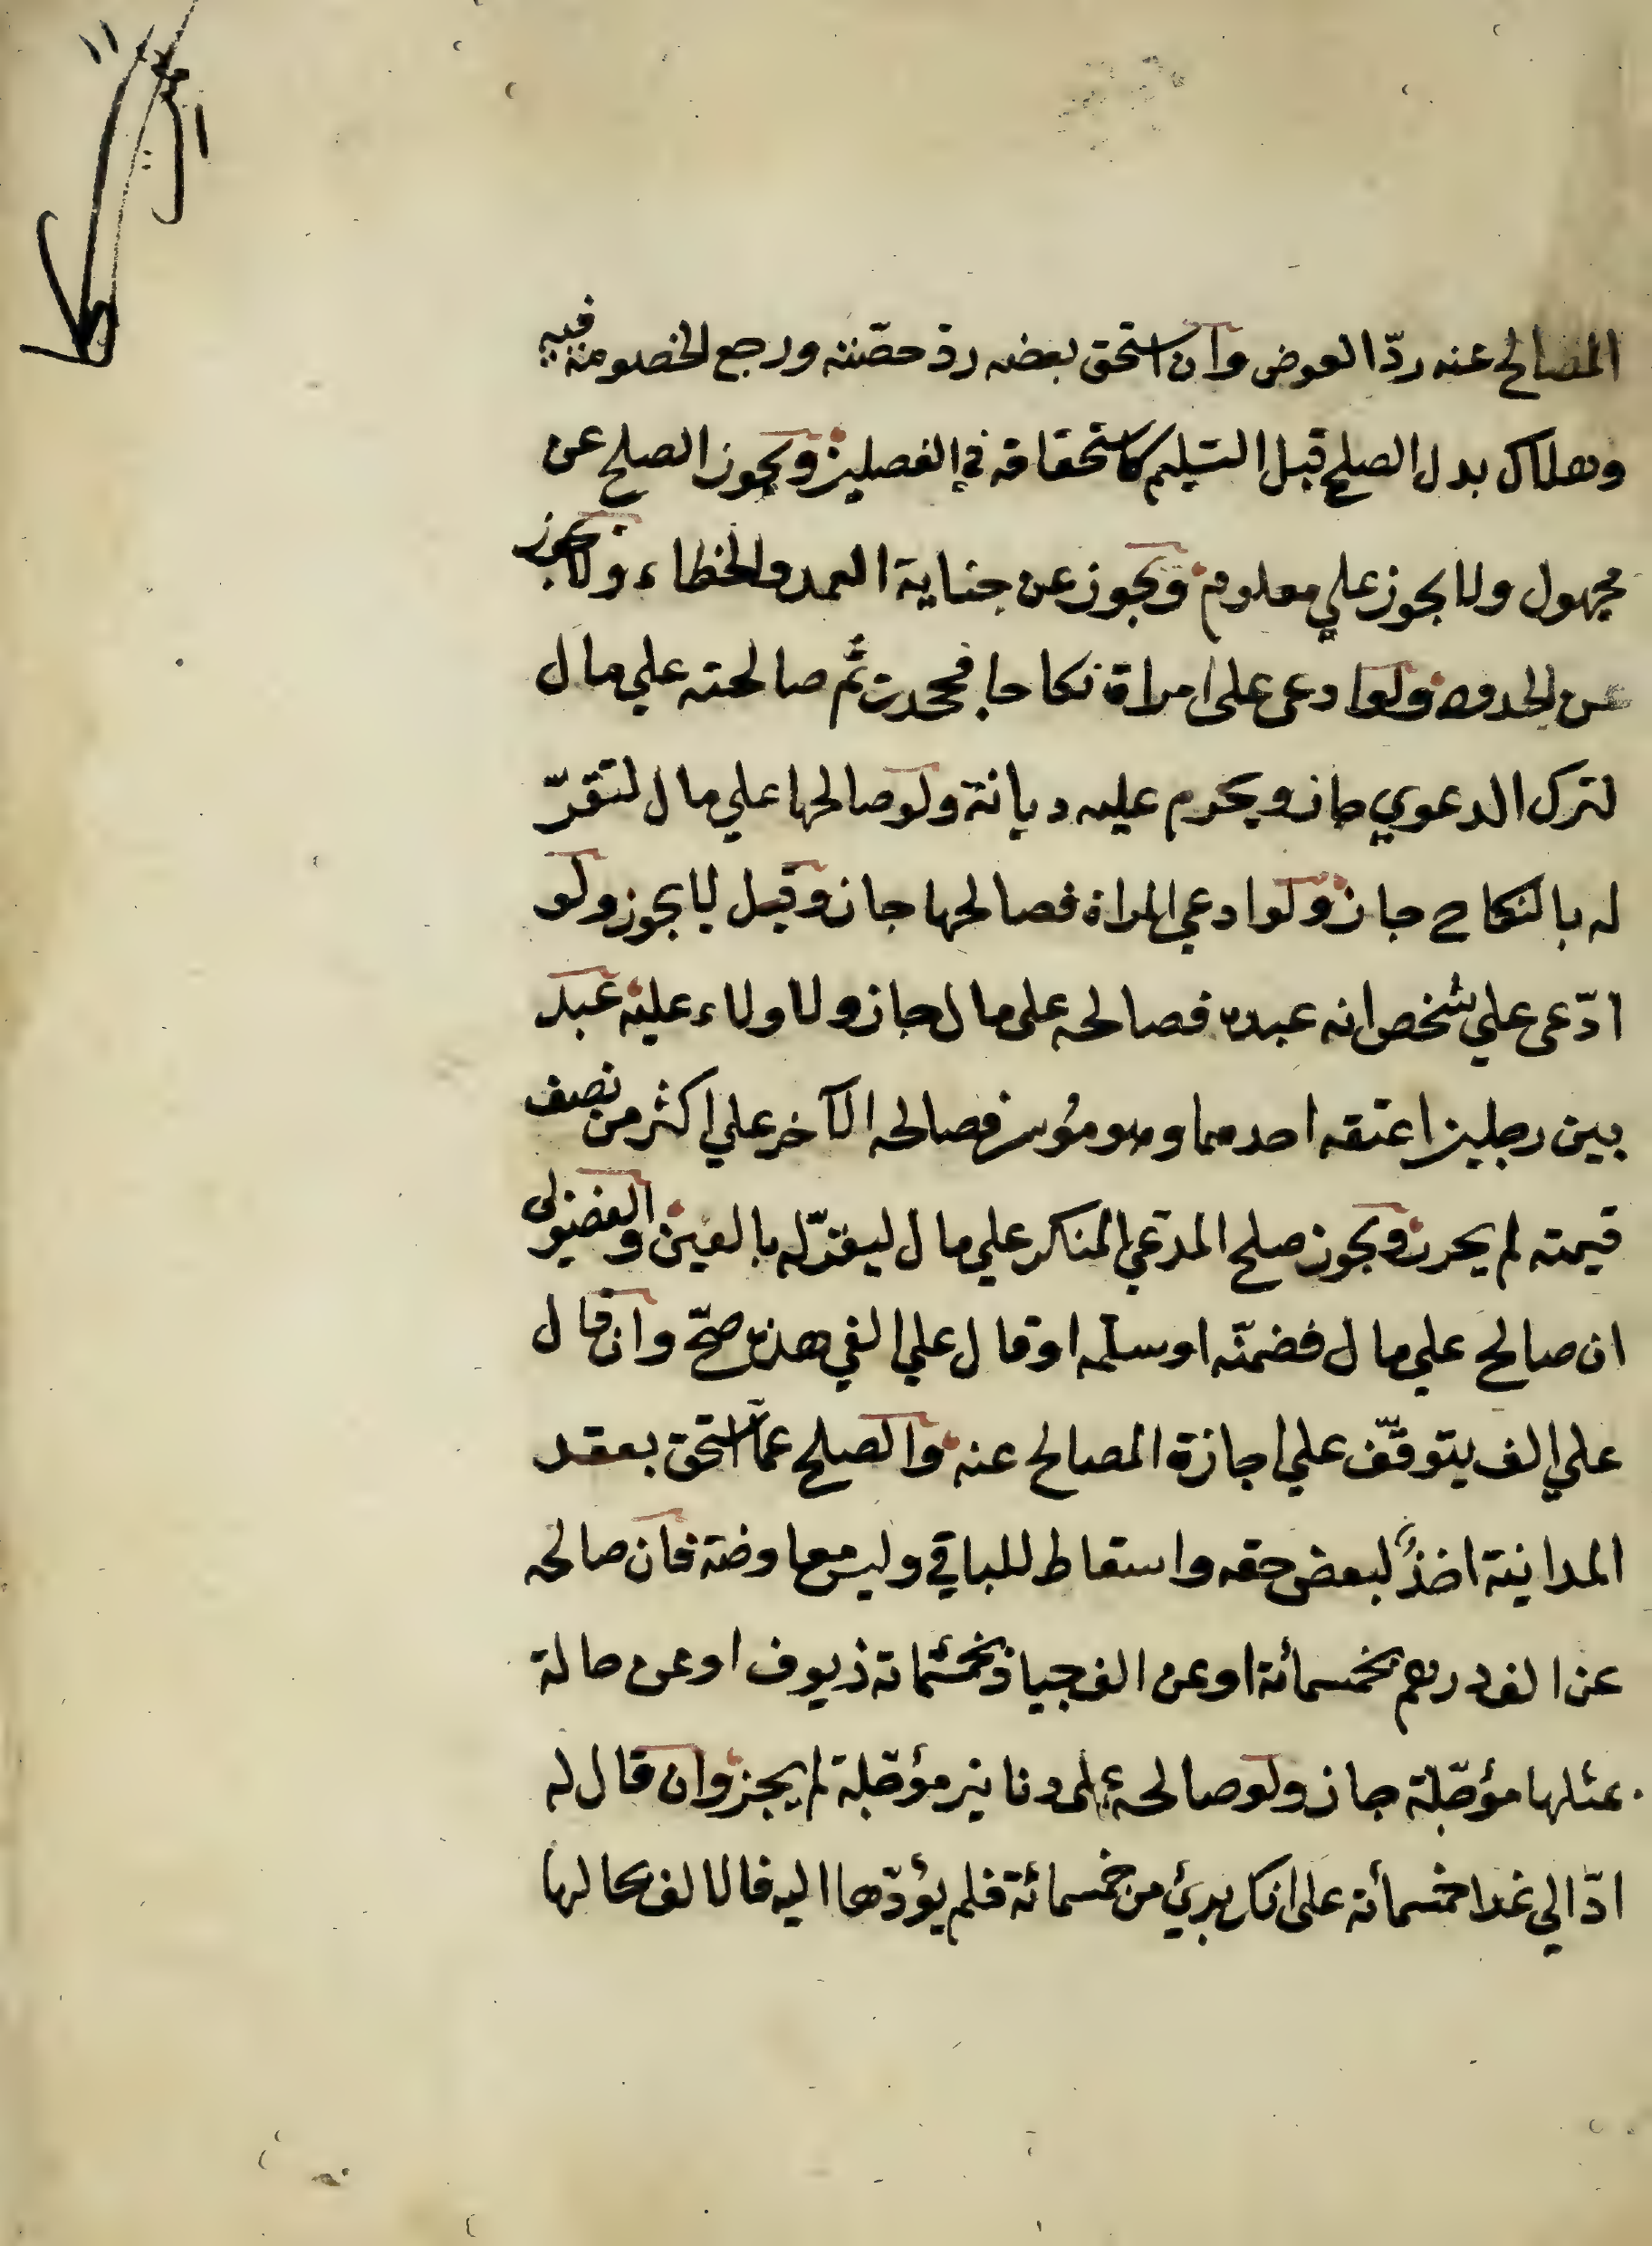 المصالح عنه ردّ العوض وان استحق بعضه ردّ حصّته ورجع الخصومة فيه
وهلاك بدل الصلح قبل التسليم كاستحقاقه في الفصلين ويجوز الصلح عن
مجهول ولا يجوز على معلوم ويجوز عن جناية العمد والخطاء ولا يجوز
عن الحدود ولو ادعى على امراة نكاحا فجحدت ثم صالحته على مال
لترك الدعوي جاز ويحرم عليه ديانة ولو صالحها علي مال لتقرّ
له بالنكاح جاز ولو ادعي المراة فصالحها جاز وقيل لا يجوز ولو
ادّعى علي شخص انه عبده فصالحه على مال جاز ولا ولاء عليه عبد
بين رجلين اعتقه احدهما وهو مؤسر فصالحه الآخر علي اكثر من نصف
قيمته لم يجز ويجوز صلح المدّعي المنكر علي مال ليقرّ له بالعين والفضولى
ان صالح علي مال فضمنه او سلّمه او قال علي الفي هذه صحّ وان قال
علي الف يتوقّف علي اجازة المصالح عنه والصلح عمّا استحق بعقد
المداينة اخذٌ لبعض حقه واسقاط للباقي وليس معاوضة فان صالحه
عن الف درهم بخمسمائة او عن الف جياد بخمسمائة زيوف او عن حالة
بمثلها مؤجّلة جاز ولو صالحه على دنانير مؤجّلة لم يجز وان قال له
ادّ الي غدا خمسمائة على انك برئ من خمسمائة فلم يؤدّها اليه فالالف بحالها